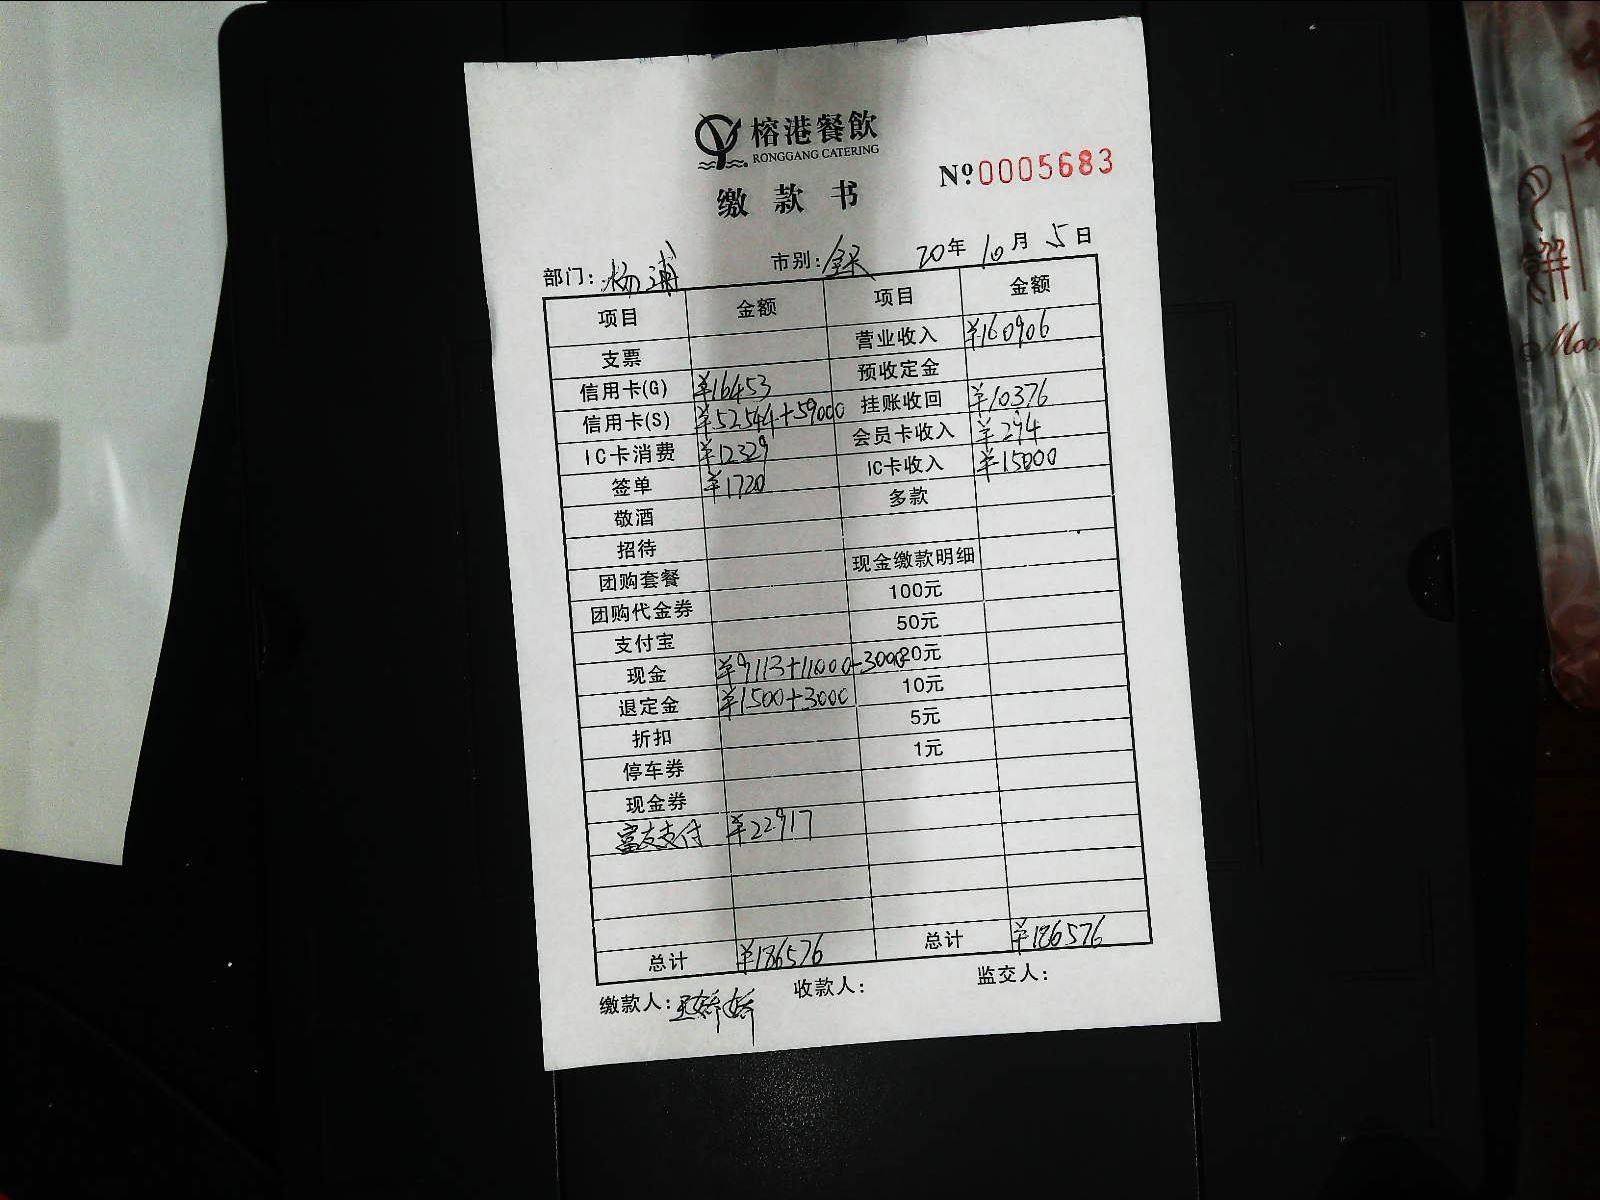 榕港餐飲
RONGGANG CATERING
№0005683
缴款书
部门：杨浦 市别：全天 20年10月5日
项目 金额 项目 金额
支票 营业收入 ¥160906
信用卡(G) ¥16453 预收定金
信用卡(S) ¥52544+59000 挂账收回 ¥10376
IC卡消费 ¥12329 会员卡收入 ¥294
签单 ¥1720 IC卡收入 ¥15000
敬酒 多款
招待
团购套餐 现金缴款明细
团购代金券 100元
支付宝 50元
现金 ¥9113+11000-3000 20元
退定金 ¥1500+3000 10元
折扣 5元
停车券 1元
现金券
富友支付 ¥22917
总计 ¥186576 总计 ¥186576
缴款人：王娇娇 收款人： 监交人：
中
解
Moo